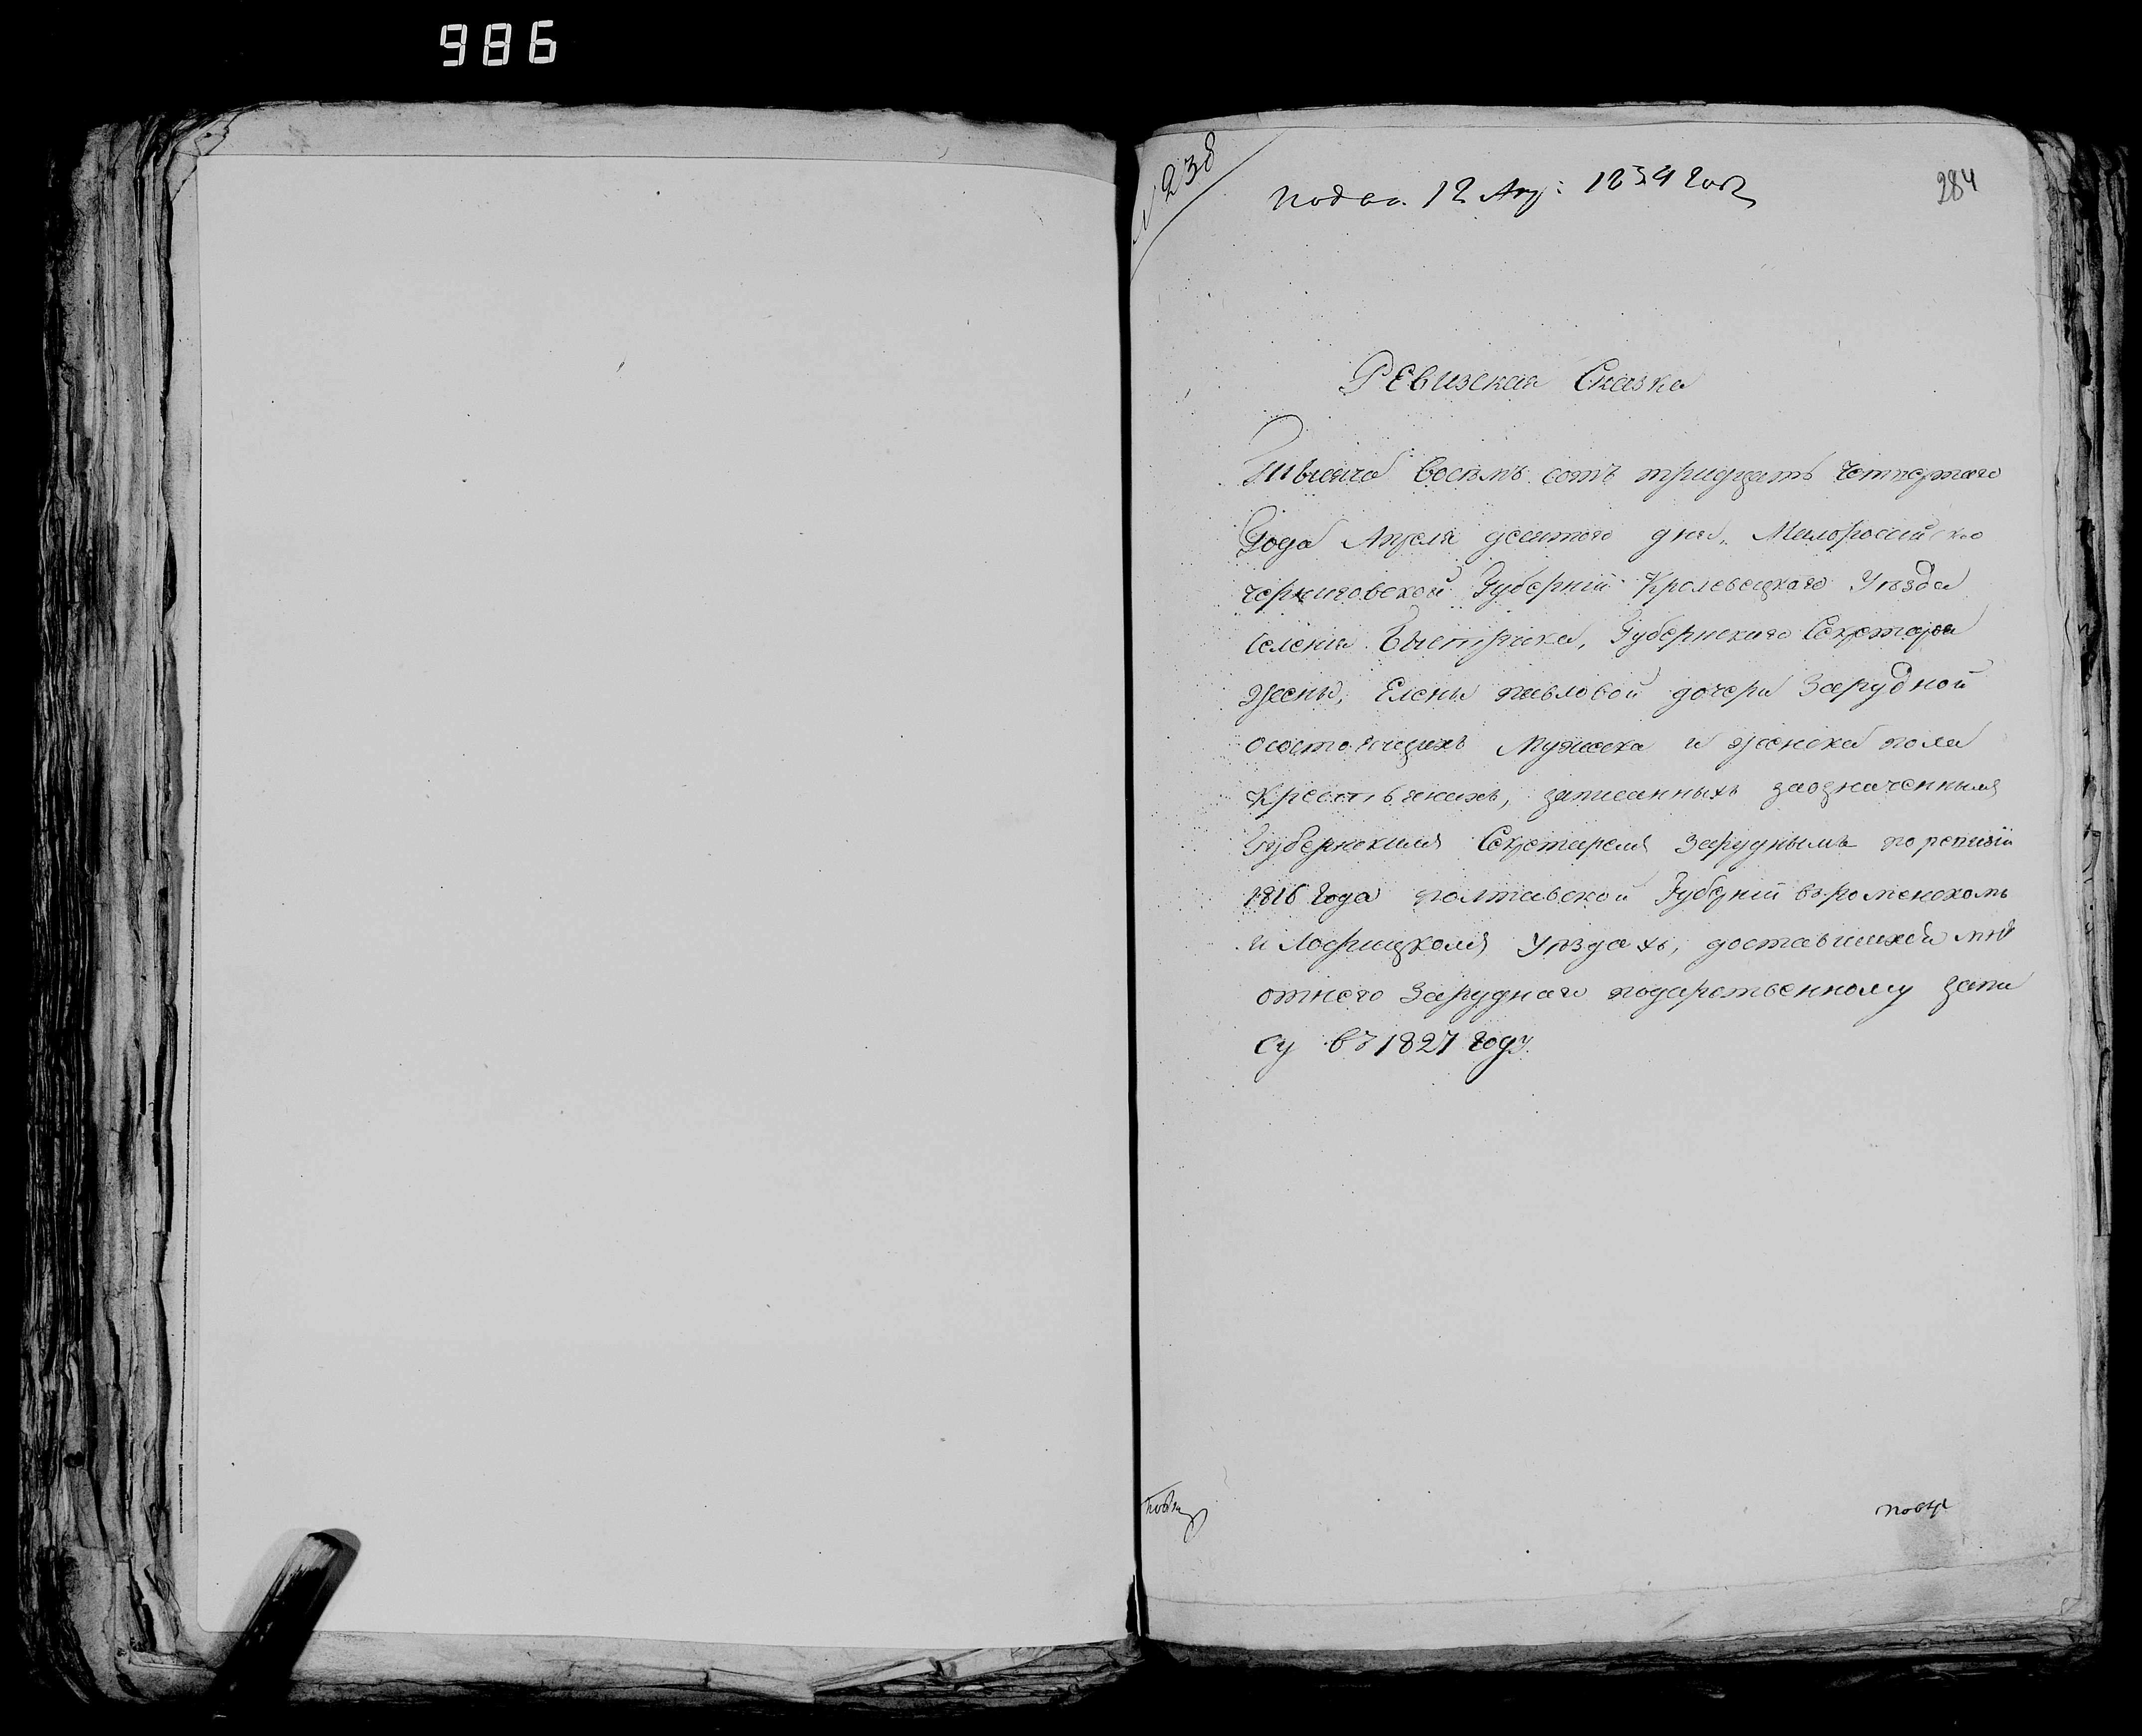 986
№ 238
Подан. 12 Апр: 1834 года
284
Ревизская Сказка
Тысяча восемь сотъ тридцать четвертаго
Года Апреля десятого дня, Малоросийско
черниговской Губернии Кролевецкаго Уезда
селения Быстрика, Губернскаго Секретаря
жены, Елены павловой дочери Зарудной
осостоящихъ Мужеска и женска пола
Крестьянахъ, записанныхъ заозначеннымъ
Губернскимъ Секретаремъ Заруднымъ по ревизіи
1816 Года полтавской Губерніи въ роменскомъ
и Лофицкомъ Уездахъ, доставшихся мне
отнего Заруднаго подарственному запи
су въ 1827 году.